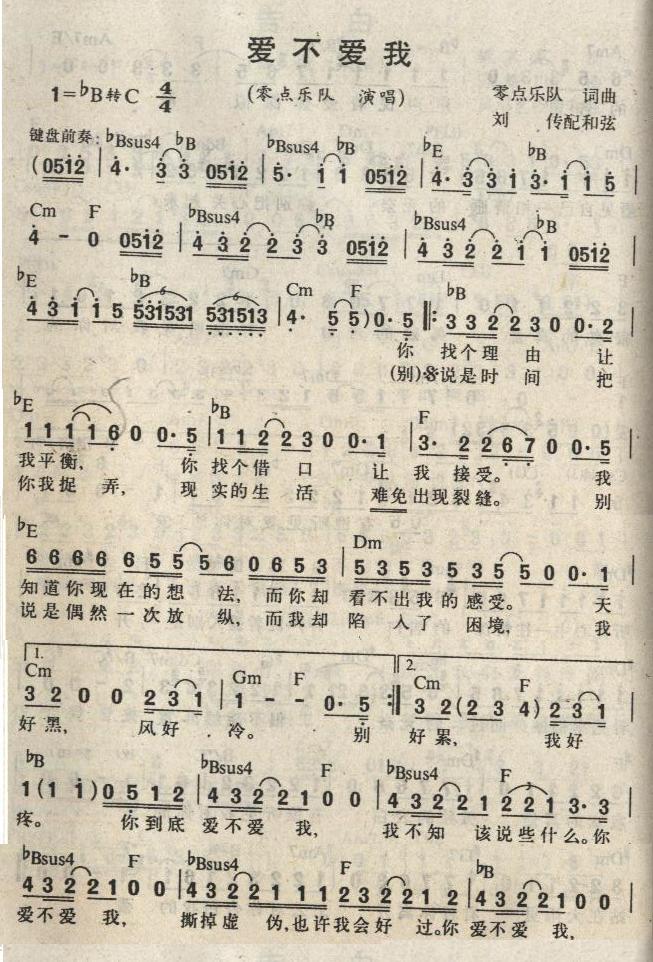 爱不爱我
1=♭B转C 4/4 (零点乐队 演唱) 零点乐队 词曲
刘 传配和弦
键盘前奏: ♭Bsus4 ♭B ♭Bsus4 ♭B ♭E ♭B
(0512 | 4· 3 3 0512 | 5· 1 1 0512 | 4· 3 3 1 3· 1 1 5 |
Cm F ♭Bsus4 ♭B ♭Bsus4 ♭B
4 - 0 0512 | 4 3 2 2 3 3 0512 | 4 3 2 2 1 1 0512 |
♭E ♭B 6 6 Cm F ♭B
4 3 1 1 5 531531 531513 | 4· 5 5) 0· 5 ‖: 3 3 2 2 3 0 0· 2 |
你 找个理 由 让
(别)𝄋说是时 间 把
♭E ♭B F
1 1 1 1 6 0 0· 5 | 1 1 2 2 3 0 0· 1 | 3· 2 2 6 7 0 0· 5 |
我平衡, 你 找个借 口 让 我 接受。 我
你我捉 弄, 现 实的生 活 难免出现裂缝。 别
♭E Dm
6 6 6 6 6 5 5 5 6 0 6 5 3 | 5 3 5 3 5 3 5 5 0 0· 1 |
知道你现在的想 法, 而你却 看不出我的感受。 天
说是偶然一次放 纵, 而我却 陷 入了 困境, 我
1. Cm Gm F 2. Cm F
3 2 0 0 2 3 1 | 1 - - 0· 5 :‖ 3 2 (2 3 4) 2 3 1 |
好黑, 风好 冷。 别 好累, 我好
♭B ♭Bsus4 F ♭Bsus4 F
1 (1 1) 0 5 1 2 | 4 3 2 2 1 0 0 | 4 3 2 2 1 2 2 1 3· 3 |
疼。 你到底 爱不爱 我, 我不知 该说些什么。你
♭Bsus4 F ♭Bsus4 F ♭B
4 3 2 2 1 0 0 | 4 3 2 2 1 1 1 2 3 2 2 1 2 | 4 3 2 2 1 0 0 |
爱不爱 我, 撕掉虚 伪,也许我会好 过。你 爱不爱 我,